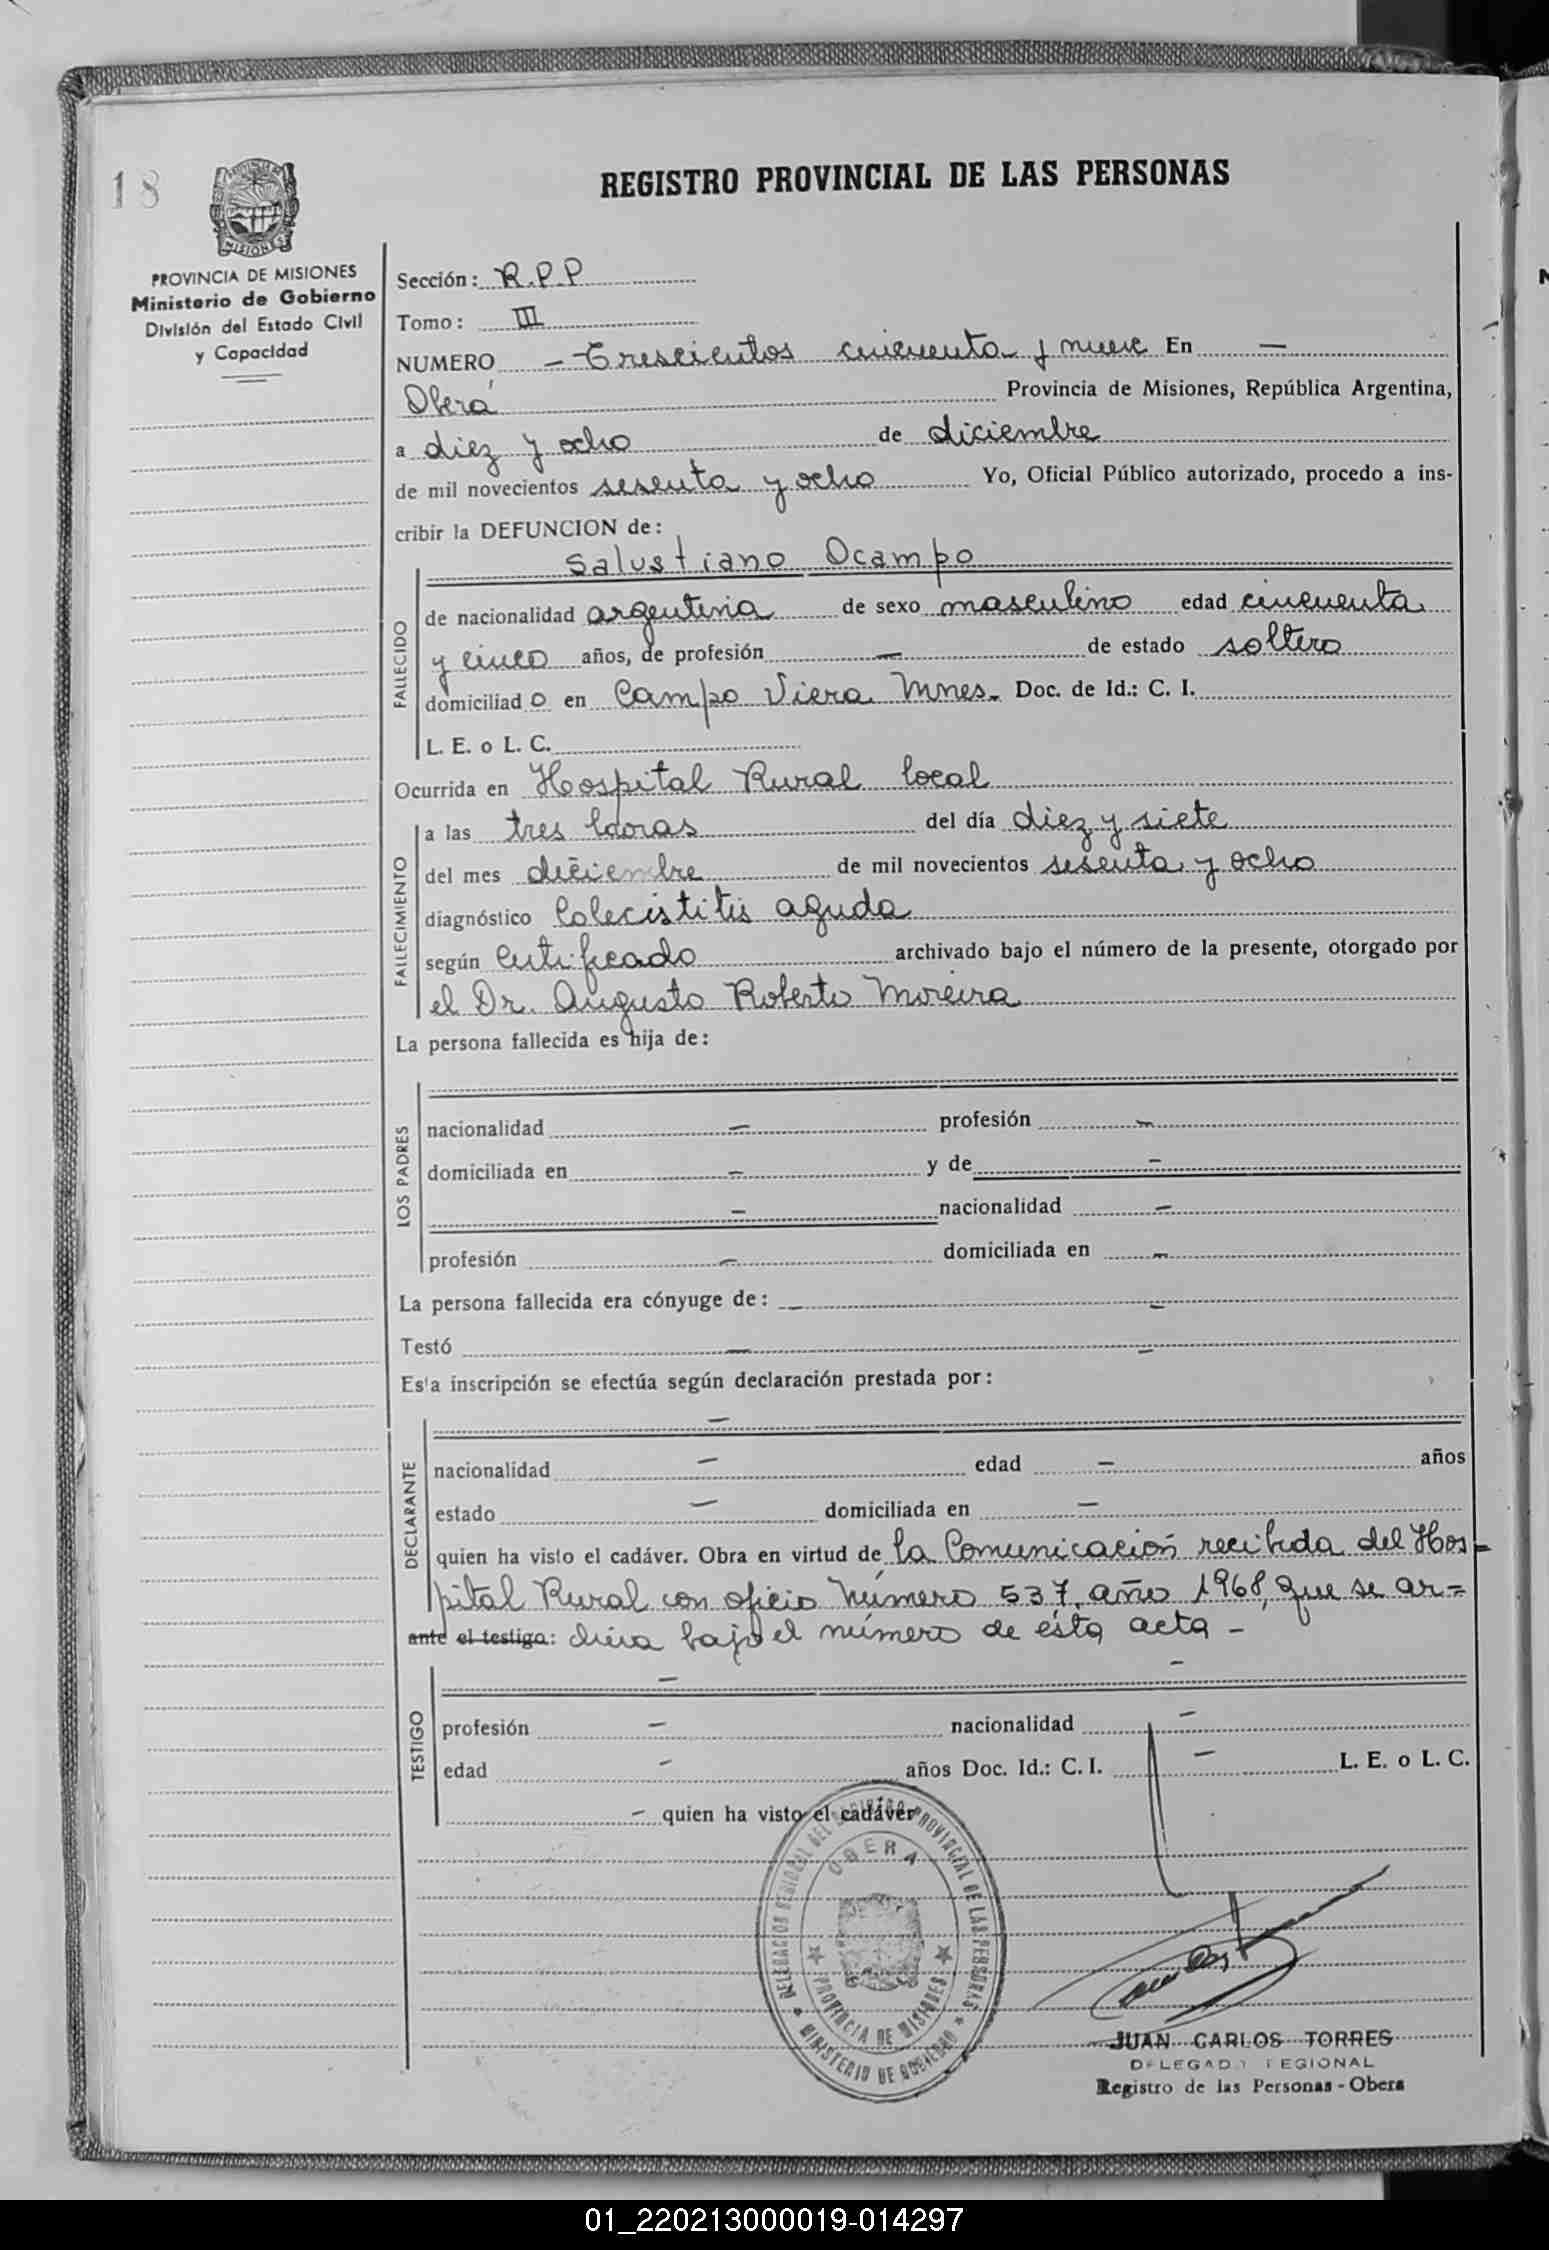 18
PROVINCIA DE MISIONES
MISIONES
REGISTRO PROVINCIAL DE LAS PERSONAS
PROVINCIA DE MISIONES
Ministerio de Gobierno
División del Estado Civil
y Capacidad
Sección: R.P.P
Tomo: III
NUMERO - Trescientos cincuenta y nueve En -
Oberá Provincia de Misiones, República Argentina,
a diez y ocho de diciembre
de mil novecientos sesenta y ocho Yo, Oficial Público autorizado, procedo a ins-
cribir la DEFUNCION de:
Salustiano Ocampo
FALLECIDO
de nacionalidad argentina de sexo masculino edad cincuenta
y cinco años, de profesión - de estado soltero
domiciliado en Campo Viera Mnes. Doc. de Id.: C. I.
L. E. o L. C.
Ocurrida en Hospital Rural local
FALLECIMIENTO
a las tres horas del día diez y siete
del mes diciembre de mil novecientos sesenta y ocho
diagnóstico Colecistitis aguda
según certificado archivado bajo el número de la presente, otorgado por
el Dr. Augusto Roberto Moreira
La persona fallecida es hija de:
LOS PADRES
nacionalidad - profesión -
domiciliada en - y de -
- nacionalidad -
profesión - domiciliada en -
La persona fallecida era cónyuge de: - -
Testó - -
Esta inscripción se efectúa según declaración prestada por:
DECLARANTE
-
nacionalidad - edad - años
estado - domiciliada en -
quien ha visto el cadáver. Obra en virtud de la Comunicación recibida del Hos-
pital Rural con oficio número 537, año 1968, que se ar=
ante el testigo: chiva bajo el número de ésta acta -
TESTIGO
- -
profesión - nacionalidad -
edad - años Doc. Id.: C. I. - L. E. o L. C.
- quien ha visto el cadáver
DELEGACION REGIONAL DEL REGISTRO PROVINCIAL DE LAS PERSONAS
OBERA
PROVINCIA DE MISIONES
MINISTERIO DE GOBIERNO
JUAN CARLOS TORRES
DELEGADO REGIONAL
Registro de las Personas - Obera
01_220213000019-014297